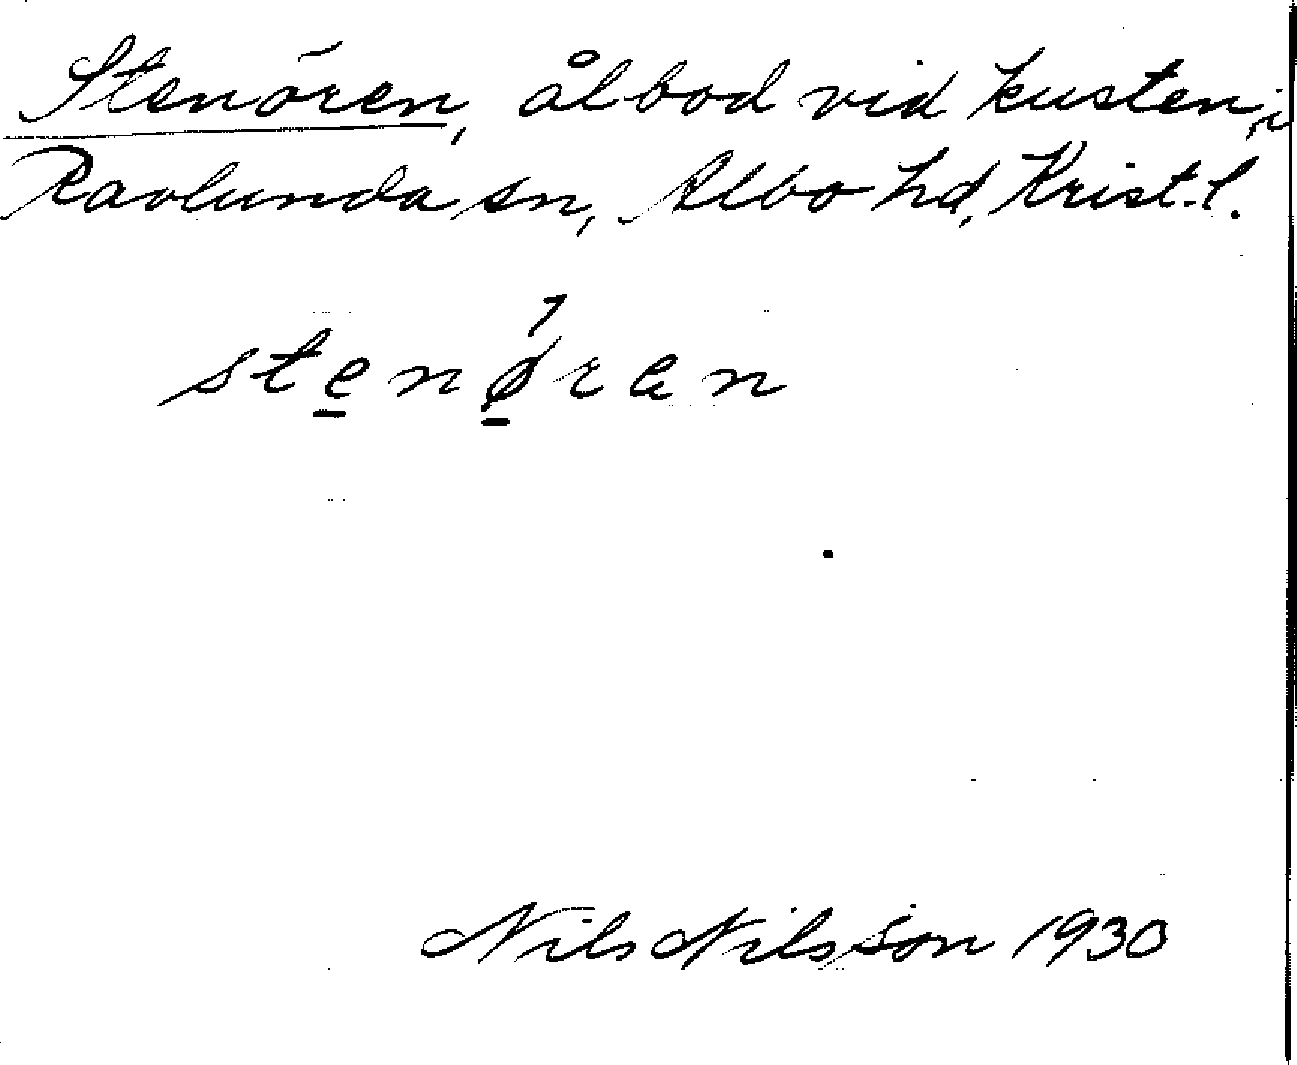 Stenören, ålbod vid kusten, i
Ravlunda sn, Albo hd, Krist. l.
stenøren
Nils Nilsson 1930